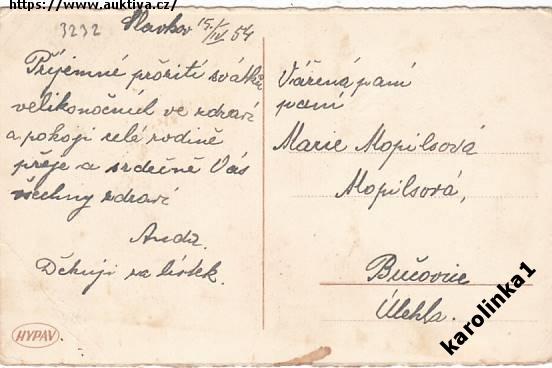 https://www.auktiva.cz/
3232
Slavkov 15/IV 54
Příjemné prožití svátků
velikonočních ve zdraví
a pokoji celé rodině
přeje a srdečně Vás
všechny zdraví
Děkuji za lístek.
Vážená paní
paní
Marie Mopilsová
Mopilsová,
Bučovice
Úlehla.
HYPAV
karolinka1